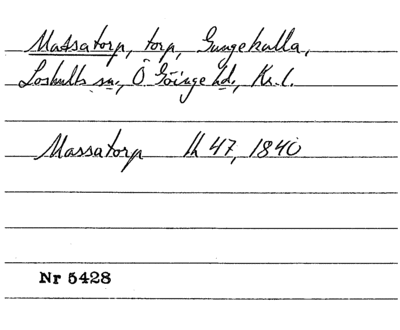 Massatorp, torp, Gungekulla,
Loshults sn., Ö Göinge hd., Kr. l.
Massatorp lk 47, 1840
Nr 5428